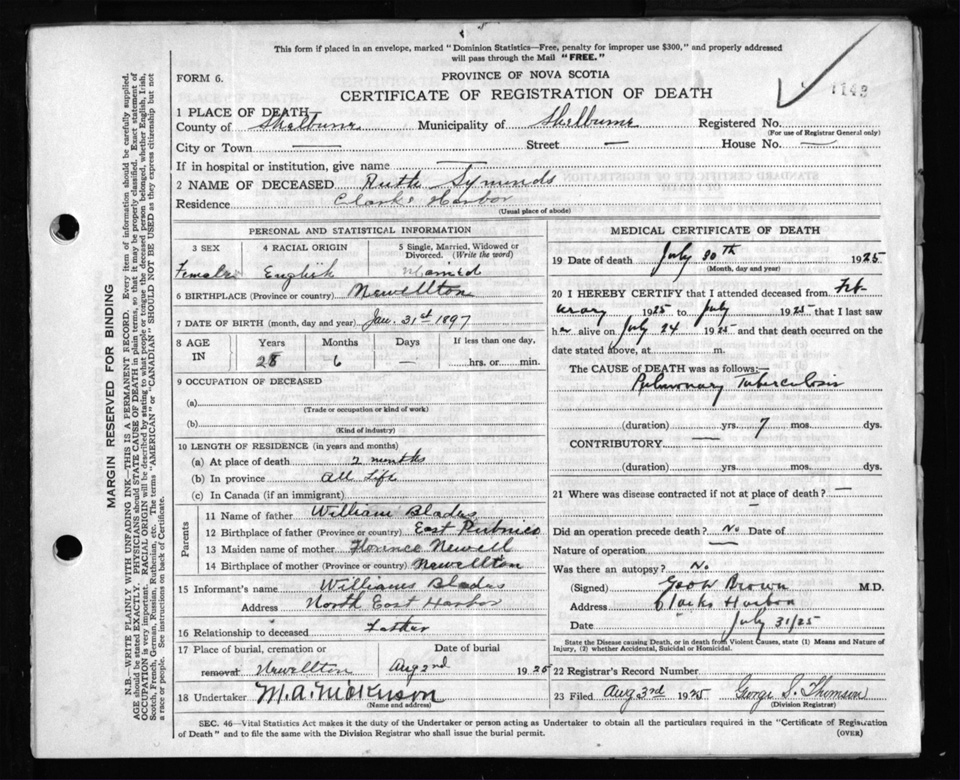 This form if placed in an envelope, marked "Dominion Statistics—Free, penalty for improper use $300," and properly addressed
will pass through the Mail "FREE."
FORM 6.
PROVINCE OF NOVA SCOTIA
CERTIFICATE OF REGISTRATION OF DEATH
1149
1 PLACE OF DEATH—
County of Shelburne Municipality of Shelburne Registered No.
(For use of Registrar General only)
City or Town — Street — House No. —
If in hospital or institution, give name —
2 NAME OF DECEASED Ruth Symonds
Residence Clarks Harbor
(Usual place of abode)
PERSONAL AND STATISTICAL INFORMATION
3 SEX 4 RACIAL ORIGIN 5 Single, Married, Widowed or
Divorced. (Write the word)
Female English Married
6 BIRTHPLACE (Province or country) Newellton
7 DATE OF BIRTH (month, day and year) Jan. 31st 1897
8 AGE IN Years Months Days If less than one day,
28 6 — hrs. or min.
9 OCCUPATION OF DECEASED
(a)
(Trade or occupation or kind of work)
(b)
(Kind of industry)
10 LENGTH OF RESIDENCE (in years and months)
(a) At place of death 2 months
(b) In province All Life
(c) In Canada (if an immigrant)
Parents
11 Name of father William Blades
12 Birthplace of father (Province or country) East Pubnico
13 Maiden name of mother Florence Newell
14 Birthplace of mother (Province or country) Newellton
15 Informant's name Williams Blades
Address North East Harbor
16 Relationship to deceased Father
17 Place of burial, cremation or Date of burial
removal Newellton Aug 2nd 1925
18 Undertaker M.A. Nickerson
(Name and address)
MEDICAL CERTIFICATE OF DEATH
19 Date of death July 30th 1925
(Month, day and year)
20 I HEREBY CERTIFY that I attended deceased from Feb
uary 1925 to July 1925 that I last saw
her alive on July 24 1925 and that death occurred on the
date stated above, at m.
The CAUSE of DEATH was as follows:—
Pulmonary Tuberculosis
(duration) yrs. 7 mos. dys.
CONTRIBUTORY —
(duration) yrs. mos. dys.
21 Where was disease contracted if not at place of death? —
Did an operation precede death? No Date of
Nature of operation —
Was there an autopsy? No
(Signed) Brown M.D.
Address Clarks Harbor
Date July 31/25
State the Disease causing Death, or in death from Violent Causes, state (1) Means and Nature of
Injury, (2) whether Accidental, Suicidal or Homicidal.
22 Registrar's Record Number
23 Filed Aug 3rd 1925 George S. Thomson
(Division Registrar)
SEC. 46—Vital Statistics Act makes it the duty of the Undertaker or person acting as Undertaker to obtain all the particulars required in the "Certificate of Registration
of Death" and to file the same with the Division Registrar who shall issue the burial permit.
(OVER)
MARGIN RESERVED FOR BINDING
N.B.—WRITE PLAINLY WITH UNFADING INK—THIS IS A PERMANENT RECORD. Every item of information should be carefully supplied.
AGE should be stated EXACTLY. PHYSICIANS should STATE CAUSE OF DEATH in plain terms, so that it may be properly classified. Exact statement of
OCCUPATION is very important. RACIAL ORIGIN will be described by stating to what people or tongue the deceased person belonged, whether English, Irish,
Scotch, French, German, Russian, Ruthenian, etc. The terms "AMERICAN" or "CANADIAN" SHOULD NOT BE USED as they express citizenship but not
a race or people. See instructions on back of Certificate.